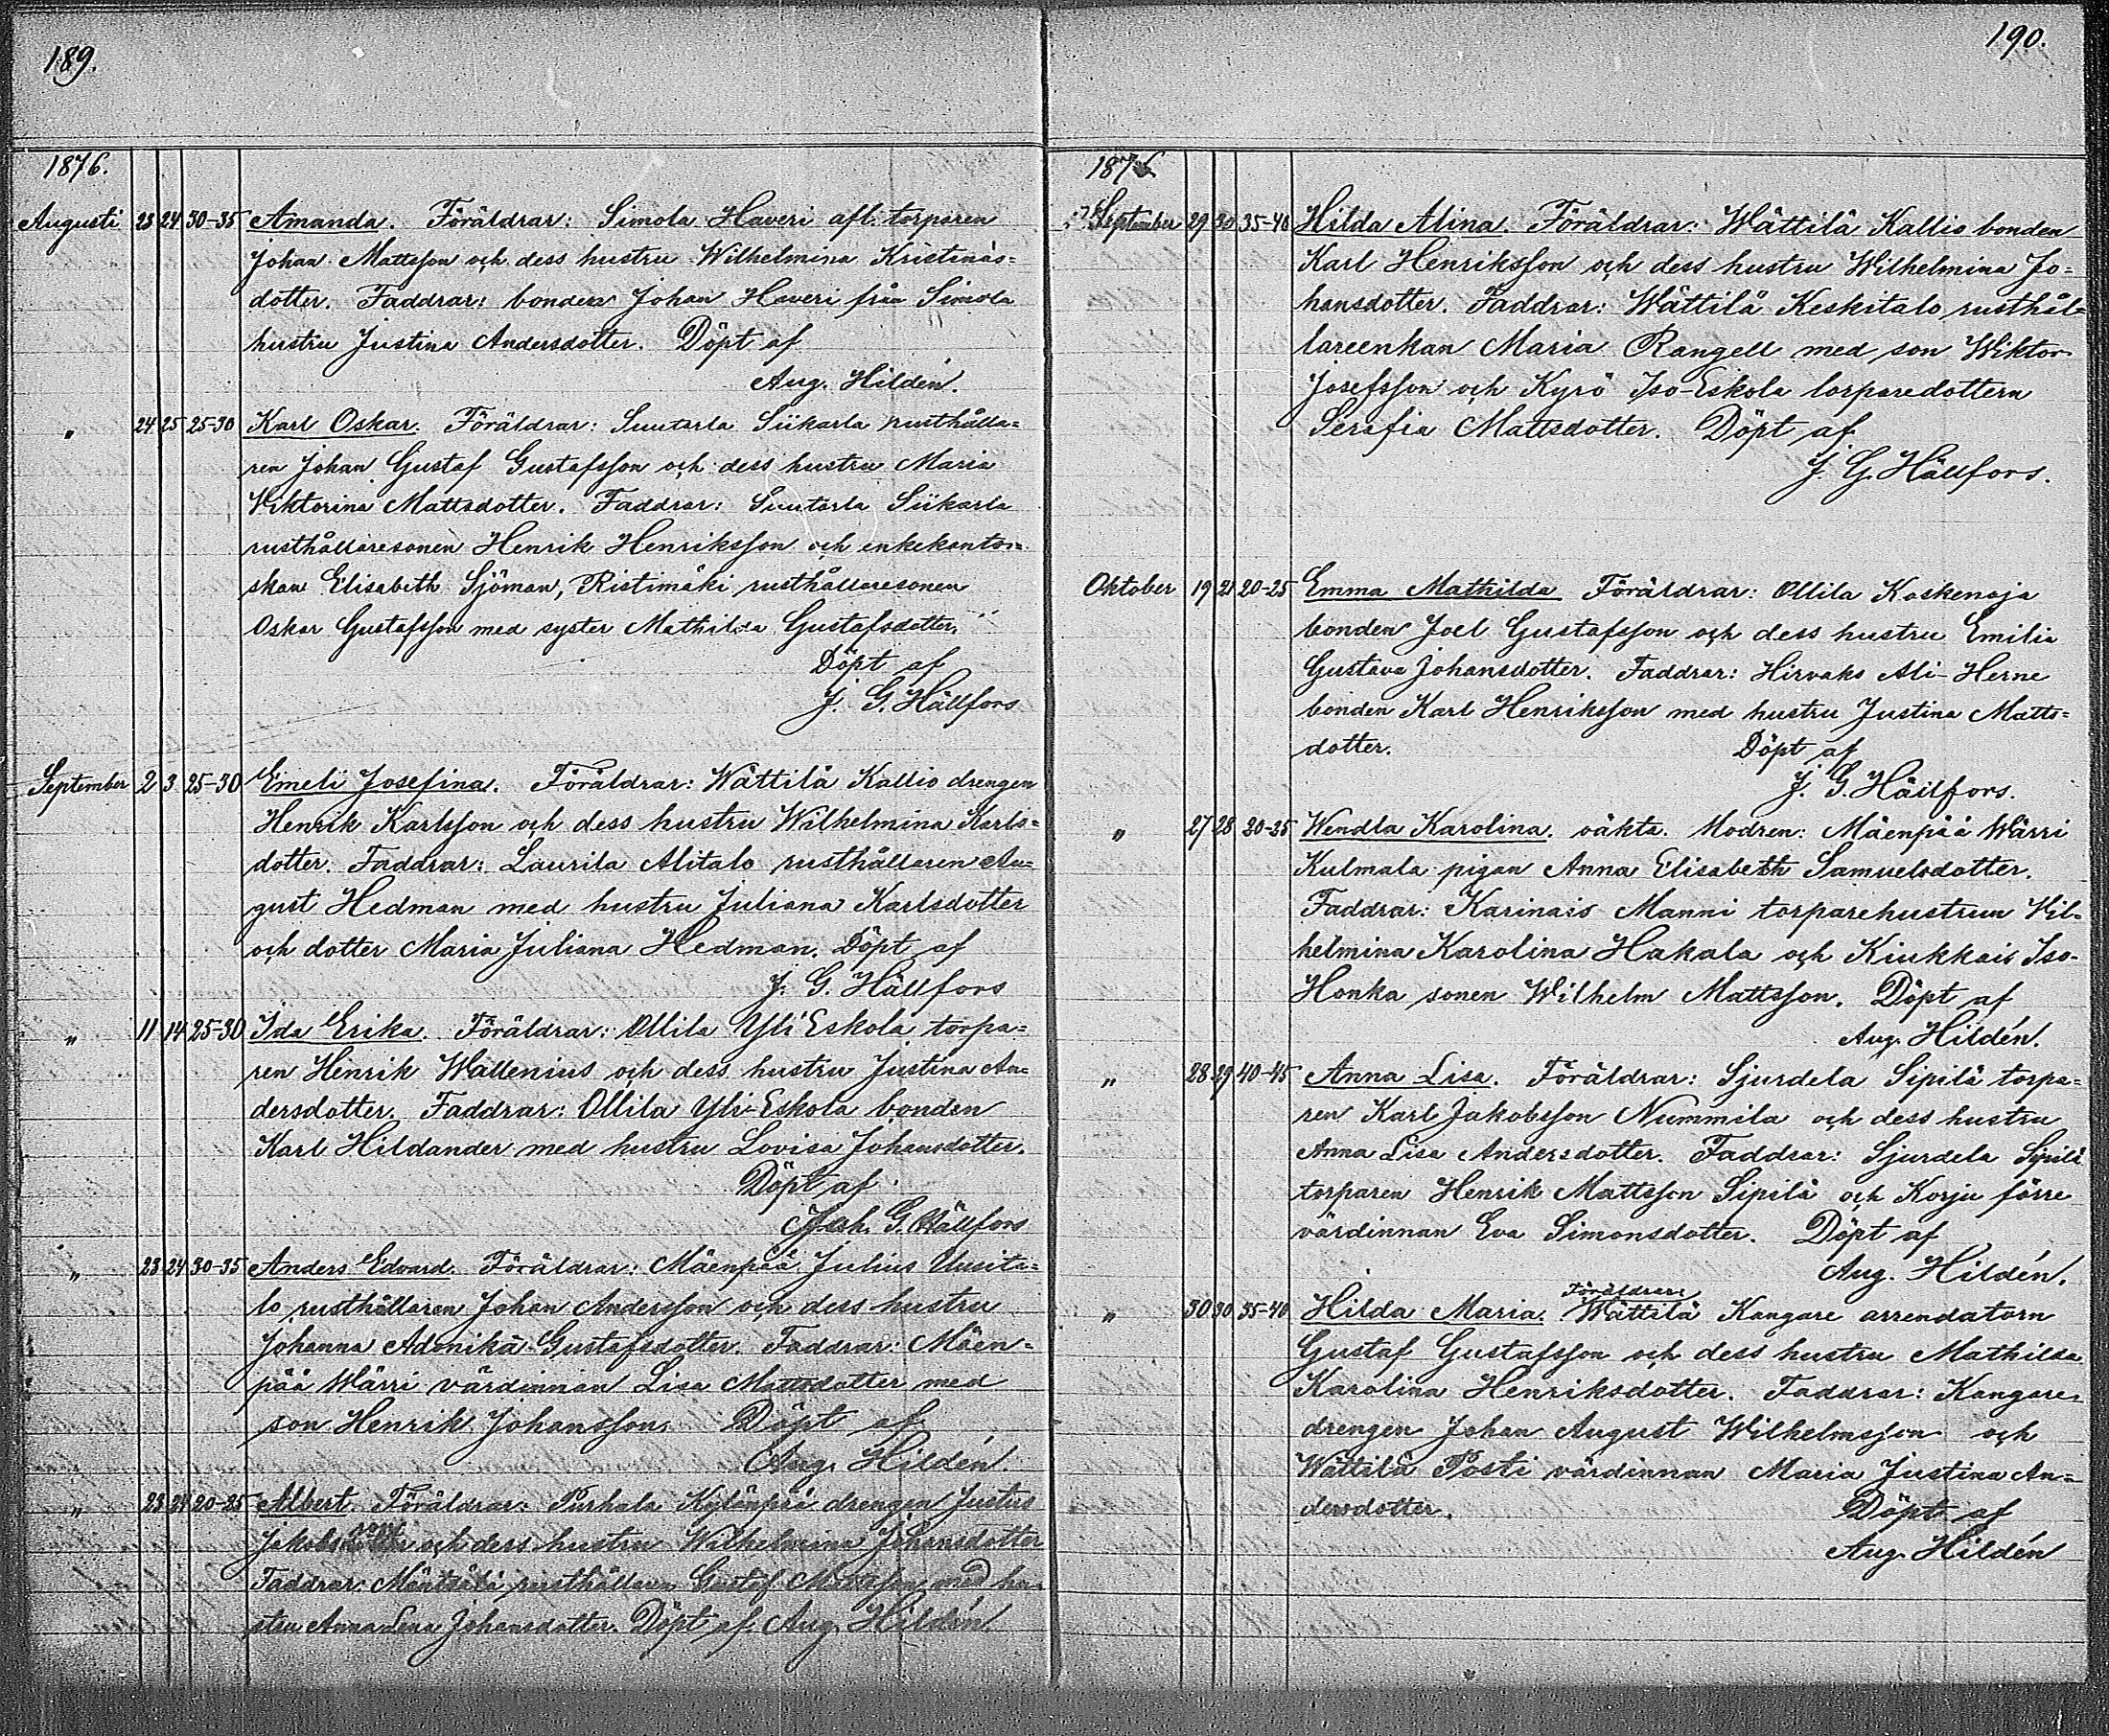 189.
1876.
Augusti 23 24 30-35 Amanda. Föräldrar: Simola Haveri afl. torparen
Johan Mattsson och dess hustru Wilhelmina Kristinas=
dotter. Faddrar: bonden Johan Haveri från Simola
hustru Justina Andersdotter. Döpt af
Aug. Hildén.
" 24 25 25-30 Karl Oskar. Föräldrar: Suutarla Siikarla rusthålla=
ren Johan Gustaf Gustafsson och dess hustru Maria
Viktorina Mattsdotter. Faddrar: Suutarla Siikarla
rusthållaresonen Henrik Henriksson och enkekantor=
skan Elisabeth Sjöman, Ristimäki rusthållaresonen
Oskar Gustafsson med syster Mathilda Gustafsdotter.
Döpt af
J. G. Hällfors
September 2 3 25-30 Emeli Josefina. Föräldrar: Wättilä Kallio drengen
Henrik Karlsson och dess hustru Wilhelmina Karls=
dotter. Faddrar: Laurila Alitalo rusthållaren Au=
gust Hedman med hustru Juliana Karlsdotter
och dotter Maria Juliana Hedman. Döpt af
J. G. Hällfors
" 11 14 25-30 Ida Erika. Föräldrar: Ollila Yli Eskola torpa=
ren Henrik Wallenius och dess hustru Justina An=
dersdotter. Faddrar: Ollila Yli-Eskola bonden
Karl Hildander med hustru Lovisa Johansdotter.
Döpt af
Joh. G. Hällfors
" 23 24 30-35 Anders Edvard. Föräldrar: Mäenpää Julius Uusita=
lo rusthållaren Johan Andersson och dess hustru
Johanna Adonika Gustafsdotter. Faddrar: Mäen=
pää Wärri värdinnan Lisa Mattsdotter med
son Henrik Johansson. Döpt af
Aug. Hildén.
" 23 24 20-25 Albert. Föräldrar: Purhala Kylänpää drengen Justus
Jakobsson och dess hustru Wilhelmina Johansdotter
Faddrar: rusthållaren Gustaf med hu=
stru Anna Lena Johansdotter. Döpt af Aug. Hildén
190.
1876
September 29 30 35-40 Hilda Alina. Föräldrar: Wättilä Kallio bonden
Karl Henriksson och dess hustru Wilhelmina Jo=
hansdotter. Faddrar: Wättilä Keskitalo rusthål=
lareenkan Maria Rangell med son Wiktor
Josefsson och Kyrö Iso-Eskola torparedottern
Serafia Mattsdotter. Döpt af
J. G. Hällfors.
Oktober 19 21 20-25 Emma Mathilda Föräldrar: Ollila Koskenoja
bonden Joel Gustafsson och dess hustru Emilia
Gustava Johansdotter. Faddrar: Hirvaks Ali-Herne
bonden Karl Henriksson med hustru Justina Matts=
dotter. Döpt af
J. G. Hällfors.
" 27 28 20-25 Wendla Karolina. oäkta. Modren: Mäenpää Wärri
Kulmala pigan Anna Elisabeth Samuelsdotter.
Faddrar: Karinais Manni torparehustrun Vil=
helmina Karolina Hakala och Kiukkais Iso-
Honka sonen Wilhelm Mattsson. Döpt af
Aug. Hildén.
" 28 29 40-45 Anna Lisa. Föräldrar: Sjurdela Sipilä torpa=
ren Karl Jakobsson Nummila och dess hustru
Anna Lisa Andersdotter. Faddrar: Sjurdela Sipilä
torparen Henrik Mattsson Sipilä och Korju förre
värdinnan Eva Simonsdotter. Döpt af
Aug. Hildén.
" 30 30 35-40 Hilda Maria. Föräldrar: Wättilä Kangare arrendatorn
Gustaf Gustafsson och dess hustru Mathilda
Karolina Henriksdotter. Faddrar: Kangare=
drengen Johan August Wilhelmsson och
Wättilä Posti värdinnan Maria Justina An=
dersdotter. Döpt af
Aug. Hildén